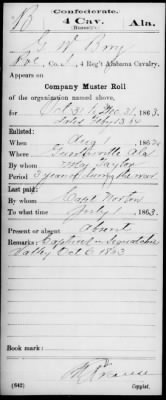 Confederate.
B 4 Cav. Ala.
(Russell's.)
G W Bray
Co. 4 Reg't Alabama Cavalry.
Appears on
Company Muster Roll
of the organization named above,
for Oct 31 to Dec. 31, 1863.
dated Feby 13 64
Enlisted:
When Aug 186
Where Guntersville Ala
By whom Taylor
Period 3 years or during the war
Last paid:
By whom Capt Norton
To what time July 1, 1863.
Present or absent Absent
Remarks: Captured in Sequatchie
Valley Oct 6 1863
Book mark:
(642) Copyist.